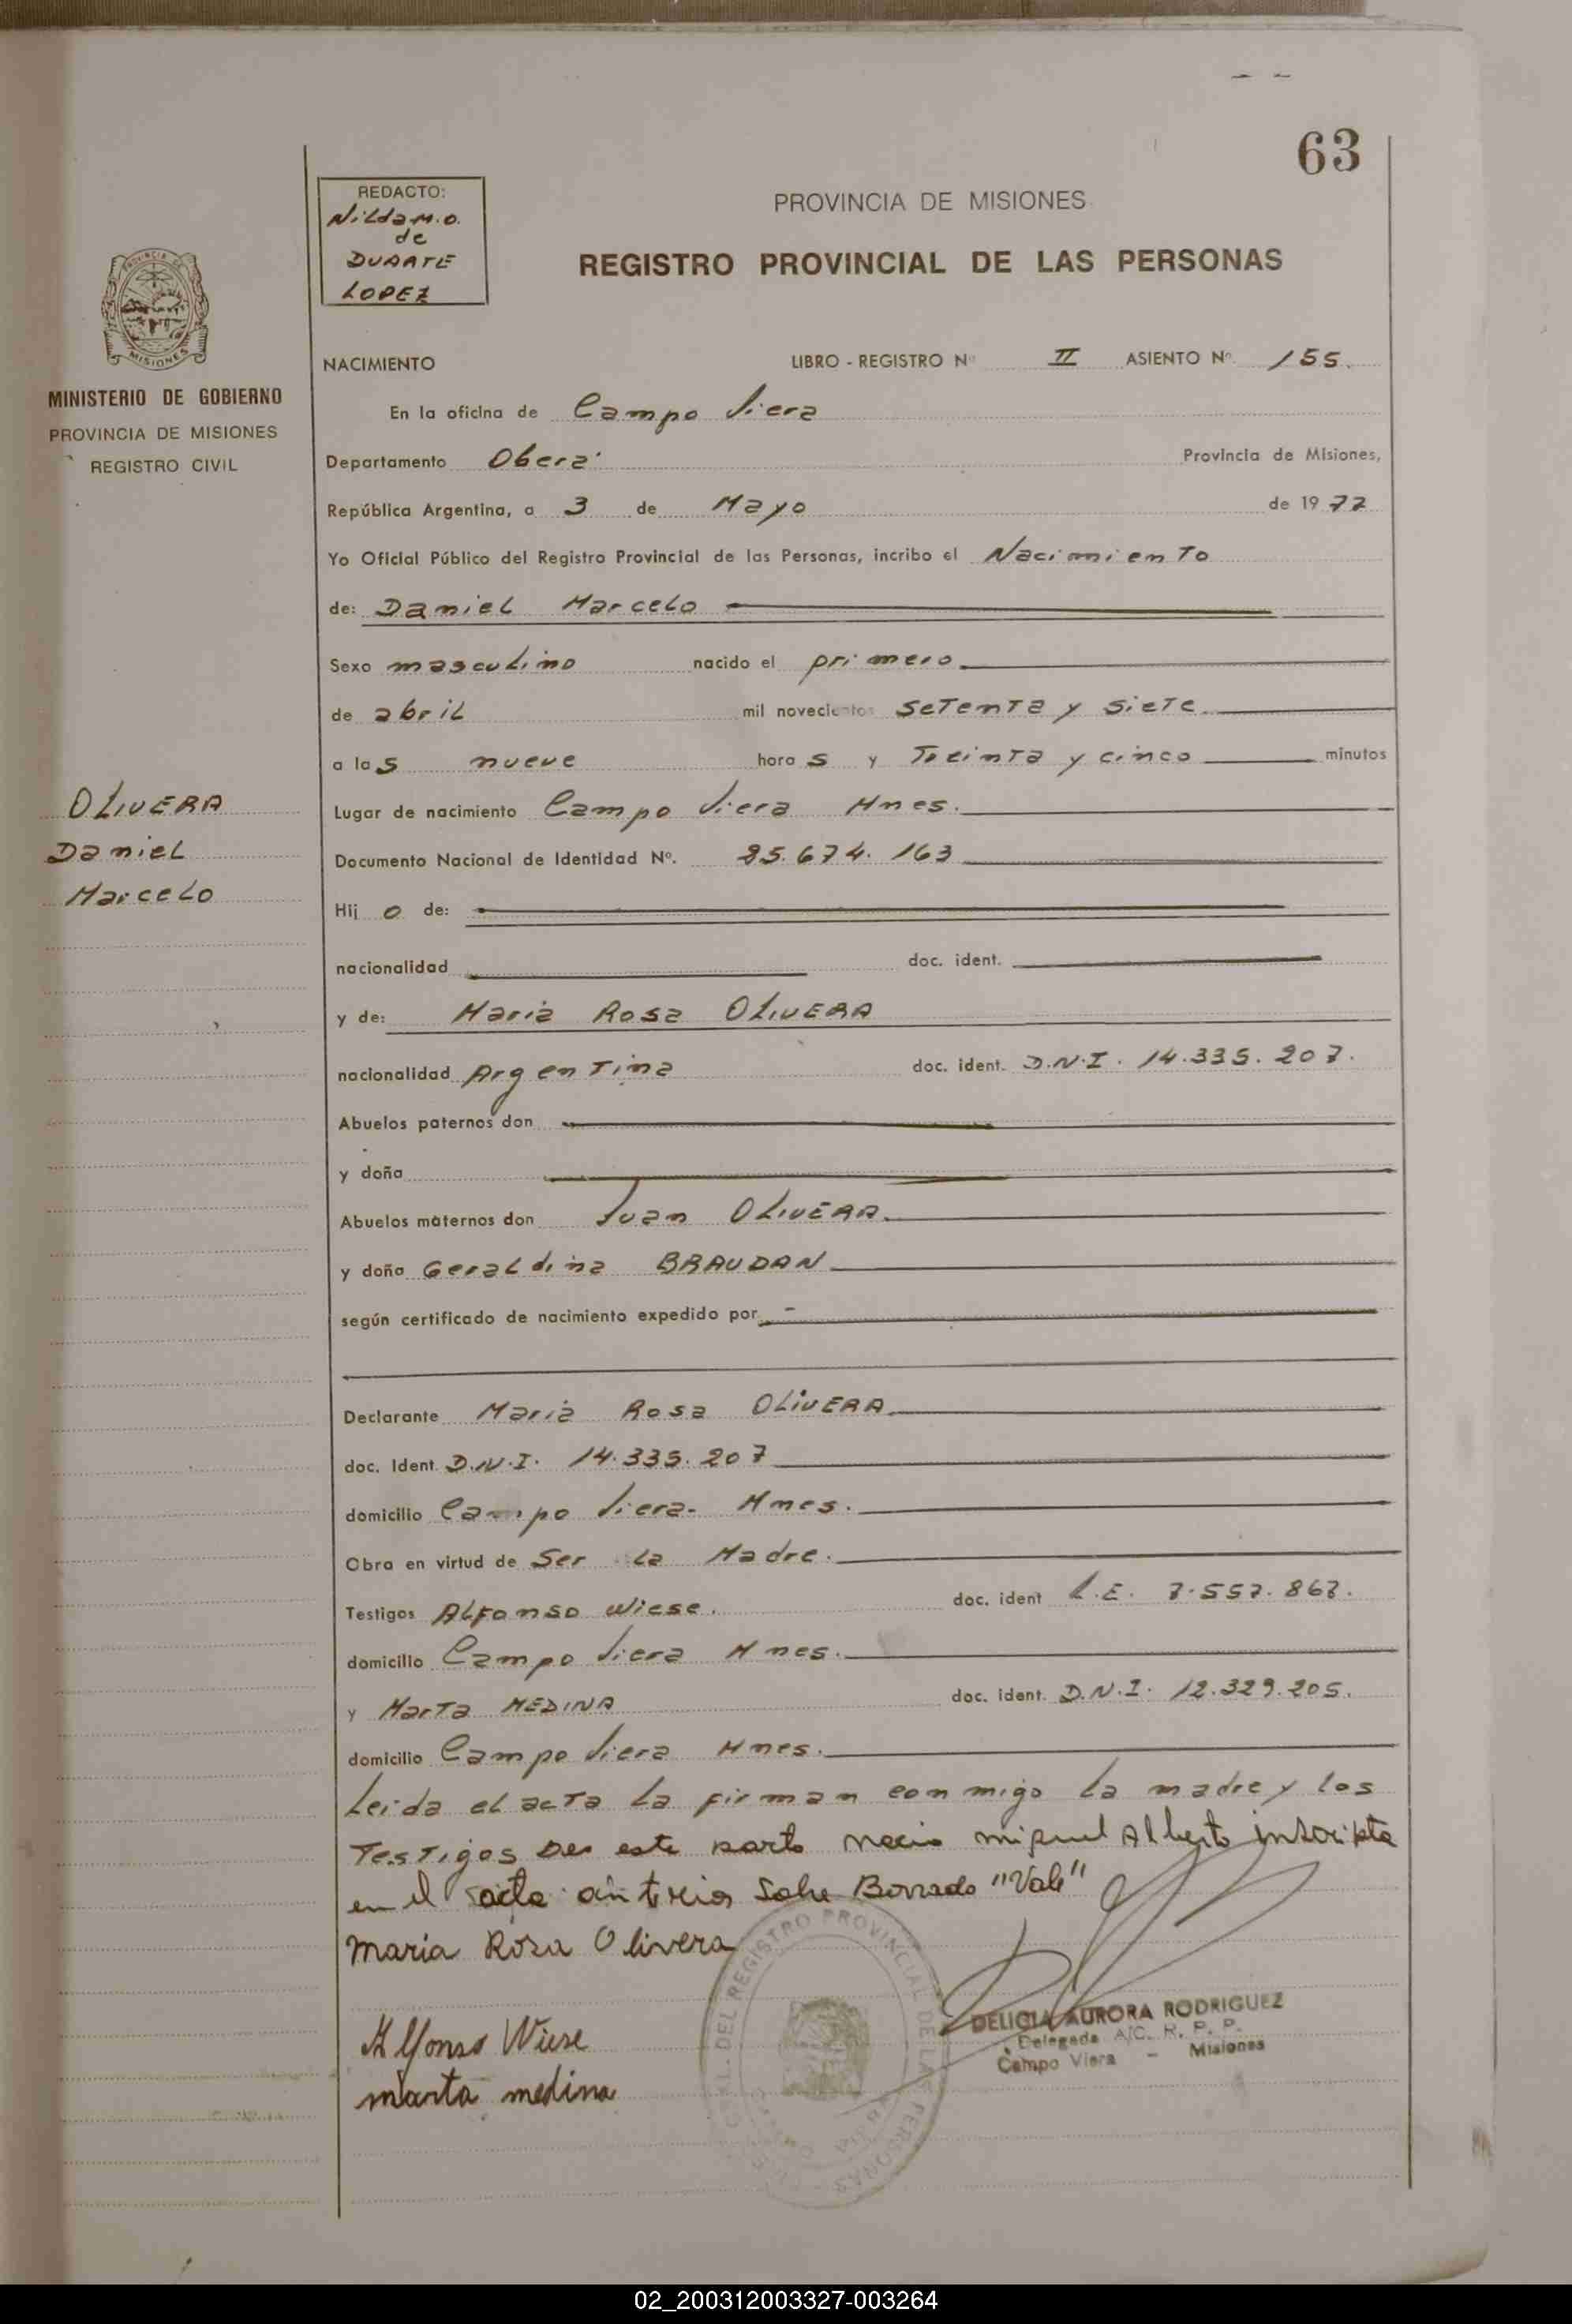 63
REDACTO:
Nilda M.O.
de
DUARTE
LOPEZ
PROVINCIA DE MISIONES
REGISTRO PROVINCIAL DE LAS PERSONAS
MISIONES
MINISTERIO DE GOBIERNO
PROVINCIA DE MISIONES
REGISTRO CIVIL
NACIMIENTO LIBRO - REGISTRO Nº II ASIENTO Nº 155.
En la oficina de Campo Viera
Departamento Oberá Provincia de Misiones,
República Argentina, a 3 de Mayo de 1977
Yo Oficial Público del Registro Provincial de las Personas, incribo el Nacimiento
de: Daniel Marcelo
Sexo masculino nacido el primero
de abril mil novecientos setenta y siete
a las nueve horas y Treinta y cinco minutos
Lugar de nacimiento Campo Viera Mnes.
OLIVERA
Daniel
Marcelo
Documento Nacional de Identidad Nº. 25.674.163
Hijo de:
nacionalidad doc. ident.
y de: Maria Rosa OLIVERA
nacionalidad Argentina doc. ident. D.N.I. 14.335.207.
Abuelos paternos don
y doña
Abuelos maternos don Juan OLIVERA
y doña Geraldina BRAUDAN
según certificado de nacimiento expedido por -
Declarante Maria Rosa OLIVERA
doc. Ident. D.N.I. 14.335.207
domicilio Campo Viera- Mnes.
Obra en virtud de Ser la Madre.
Testigos Alfonso Wiese. doc. ident L.E. 7.557.867.
domicilio Campo Viera Mnes.
y Marta MEDINA doc. ident. D.N.I. 12.329.205.
domicilio Campo Viera Mnes.
Leida el acta la firman conmigo la madre y los
Testigos De este parto nacio miguel Alberto inscripto
en el acta anterior Sobre Borrado "Vale"
maria Rosa Olivera
Alfonso Wiese
marta medina
DEL REGISTRO PROVINCIAL DE LAS PERSONAS
DELICIA AURORA RODRIGUEZ
Delegada A/C. R. P. P.
Campo Viera - Misiones
02_200312003327-003264